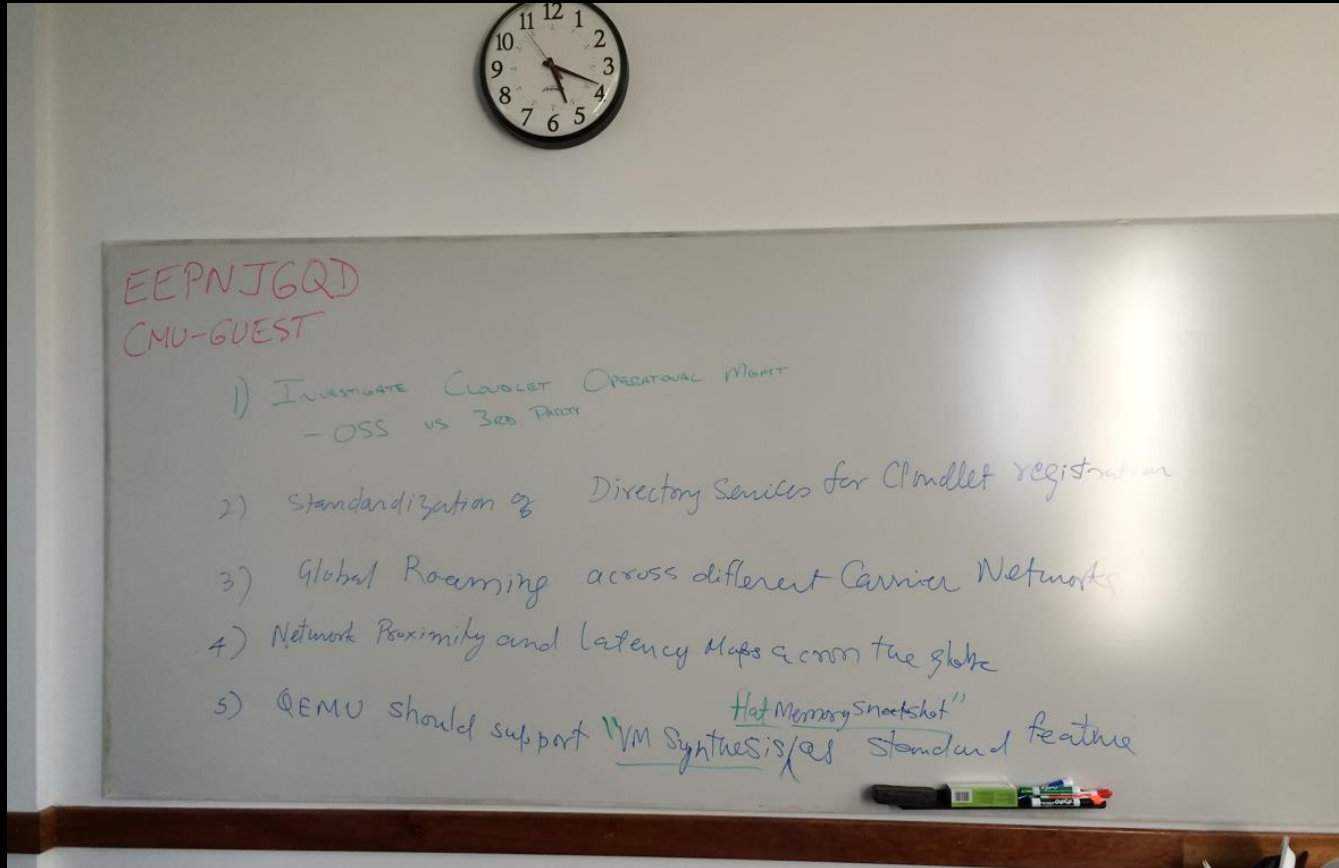 11 12 1
10 2
9 3
8 4
7 6 5
EEPNJGQD
CMU-GUEST
1) INVESTIGATE CLOUDLET OPERATIONAL MGMT
- OSS VS 3RD PARTY
2) Standardization of Directory Services for Cloudlet registration
3) Global Roaming across different Carrier Networks
4) Network Proximity and Latency Maps across the globe
Memory
5) QEMU should support "VM Synthesis/as standard feature